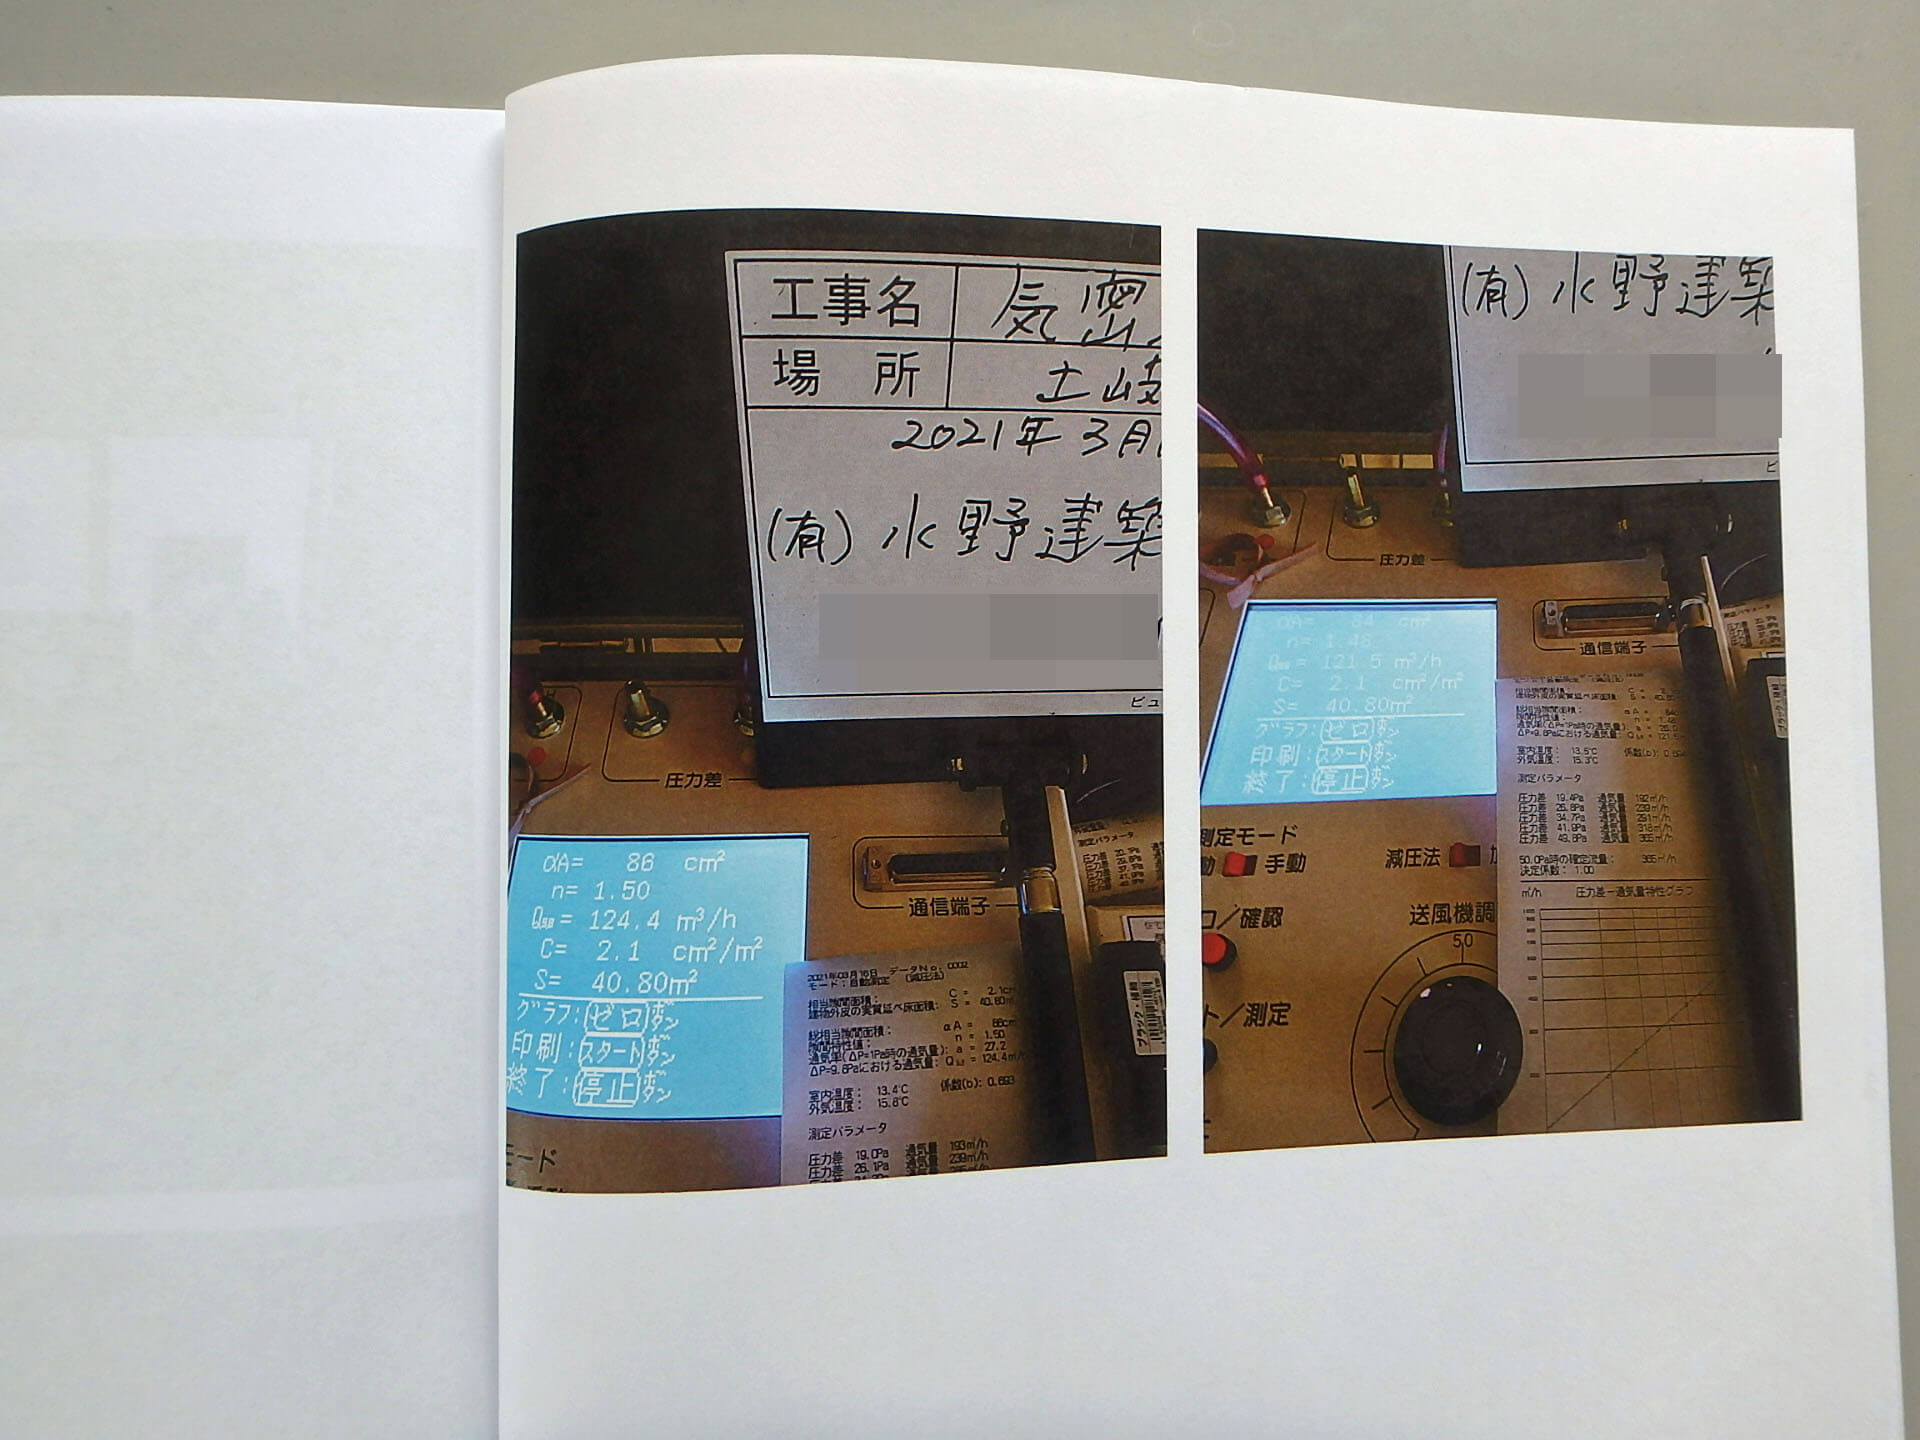 工事名 気密
場 所 土岐
2021年 3月
(有) 水野建築
ビュ
圧力差
通信端子
αA= 86 cm²
n= 1.50
Q9.8= 124.4 m³/h
C= 2.1 cm²/m²
S= 40.80m²
グラフ:ゼロボタン
印刷:スタートボタン
終了:停止ボタン
モード
2021年03月16日 データNo. 0002
モード:自動測定 (減圧法)
相当隙間面積: C = 2.1c
建物外皮の実質延べ床面積: S = 40.80
総相当隙間面積: αA = 86c
隙間特性値: n = 1.50
通気率(ΔP=1Pa時の通気量): a = 27.2
ΔP=9.8Paにおける通気量: Q = 124.4m³/
室内温度: 13.4℃ 係数(b): 0.693
外気温度: 15.8℃
測定パラメータ
圧力差 19.0Pa 通気量 193㎥/h
圧力差 26.1Pa 通気量 239㎥/h
(有) 水野建築
ビ
圧力差
通信端子
αA= 84 cm²
n= 1.48
Q9.8= 121.5 m³/h
C= 2.1 cm²/m²
S= 40.80m²
グラフ:ゼロボタン
印刷:スタートボタン
終了:停止ボタン
測定モード
動 手動
減圧法 加
ロ/確認
送風機調
50
ト/測定
相当隙間面積: C =
建物外皮の実質延べ床面積: S = 40.80
総相当隙間面積: αA =
隙間特性値: n =
通気率(ΔP=1Pa時の通気量): a =
ΔP=9.8Paにおける通気量: Q = 121.
室内温度: 13.5℃ 係数(b): 0.694
外気温度: 15.3℃
測定パラメータ
圧力差 19.4Pa 通気量 192㎥/h
圧力差 26.8Pa 通気量 239㎥/h
圧力差 34.7Pa 通気量 291㎥/h
圧力差 41.9Pa 通気量 318㎥/h
圧力差 49.8Pa 通気量 365㎥/h
50.0Pa時の確定流量: 365㎥/h
決定係数: 1.00
㎥/h 圧力差－通気量特性グラフ